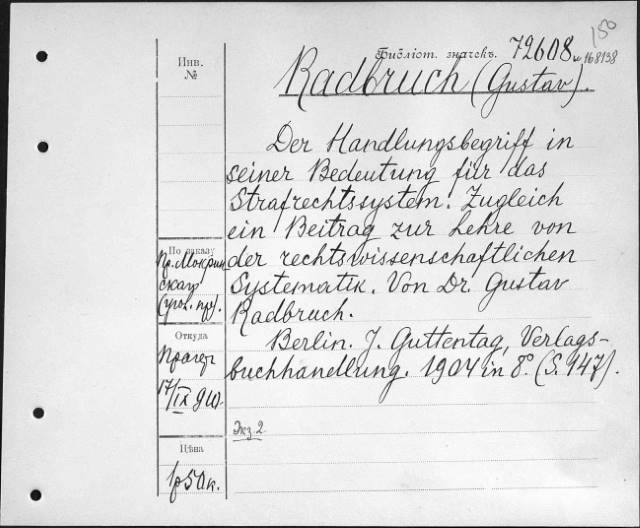 150
Библіот. значекъ. 72608
168138
Инв.
№
Radbruch (Gustav).
Der Handlungsbegriff in
seiner Bedeutung für das
Strafrechtssystem. Zugleich
ein Beitrag zur Lehre von
der rechtswissenschaftlichen
Systematik. Von Dr. Gustav
Radbruch.
Berlin. J. Guttentag, Verlags-
buchhandlung. 1904 in 8°. (S. 147).
По заказу
пр. Мокрин
скаго
(угол. пр.).
Откуда
17/IX
Экз. 2
Цѣна
1р 50к.